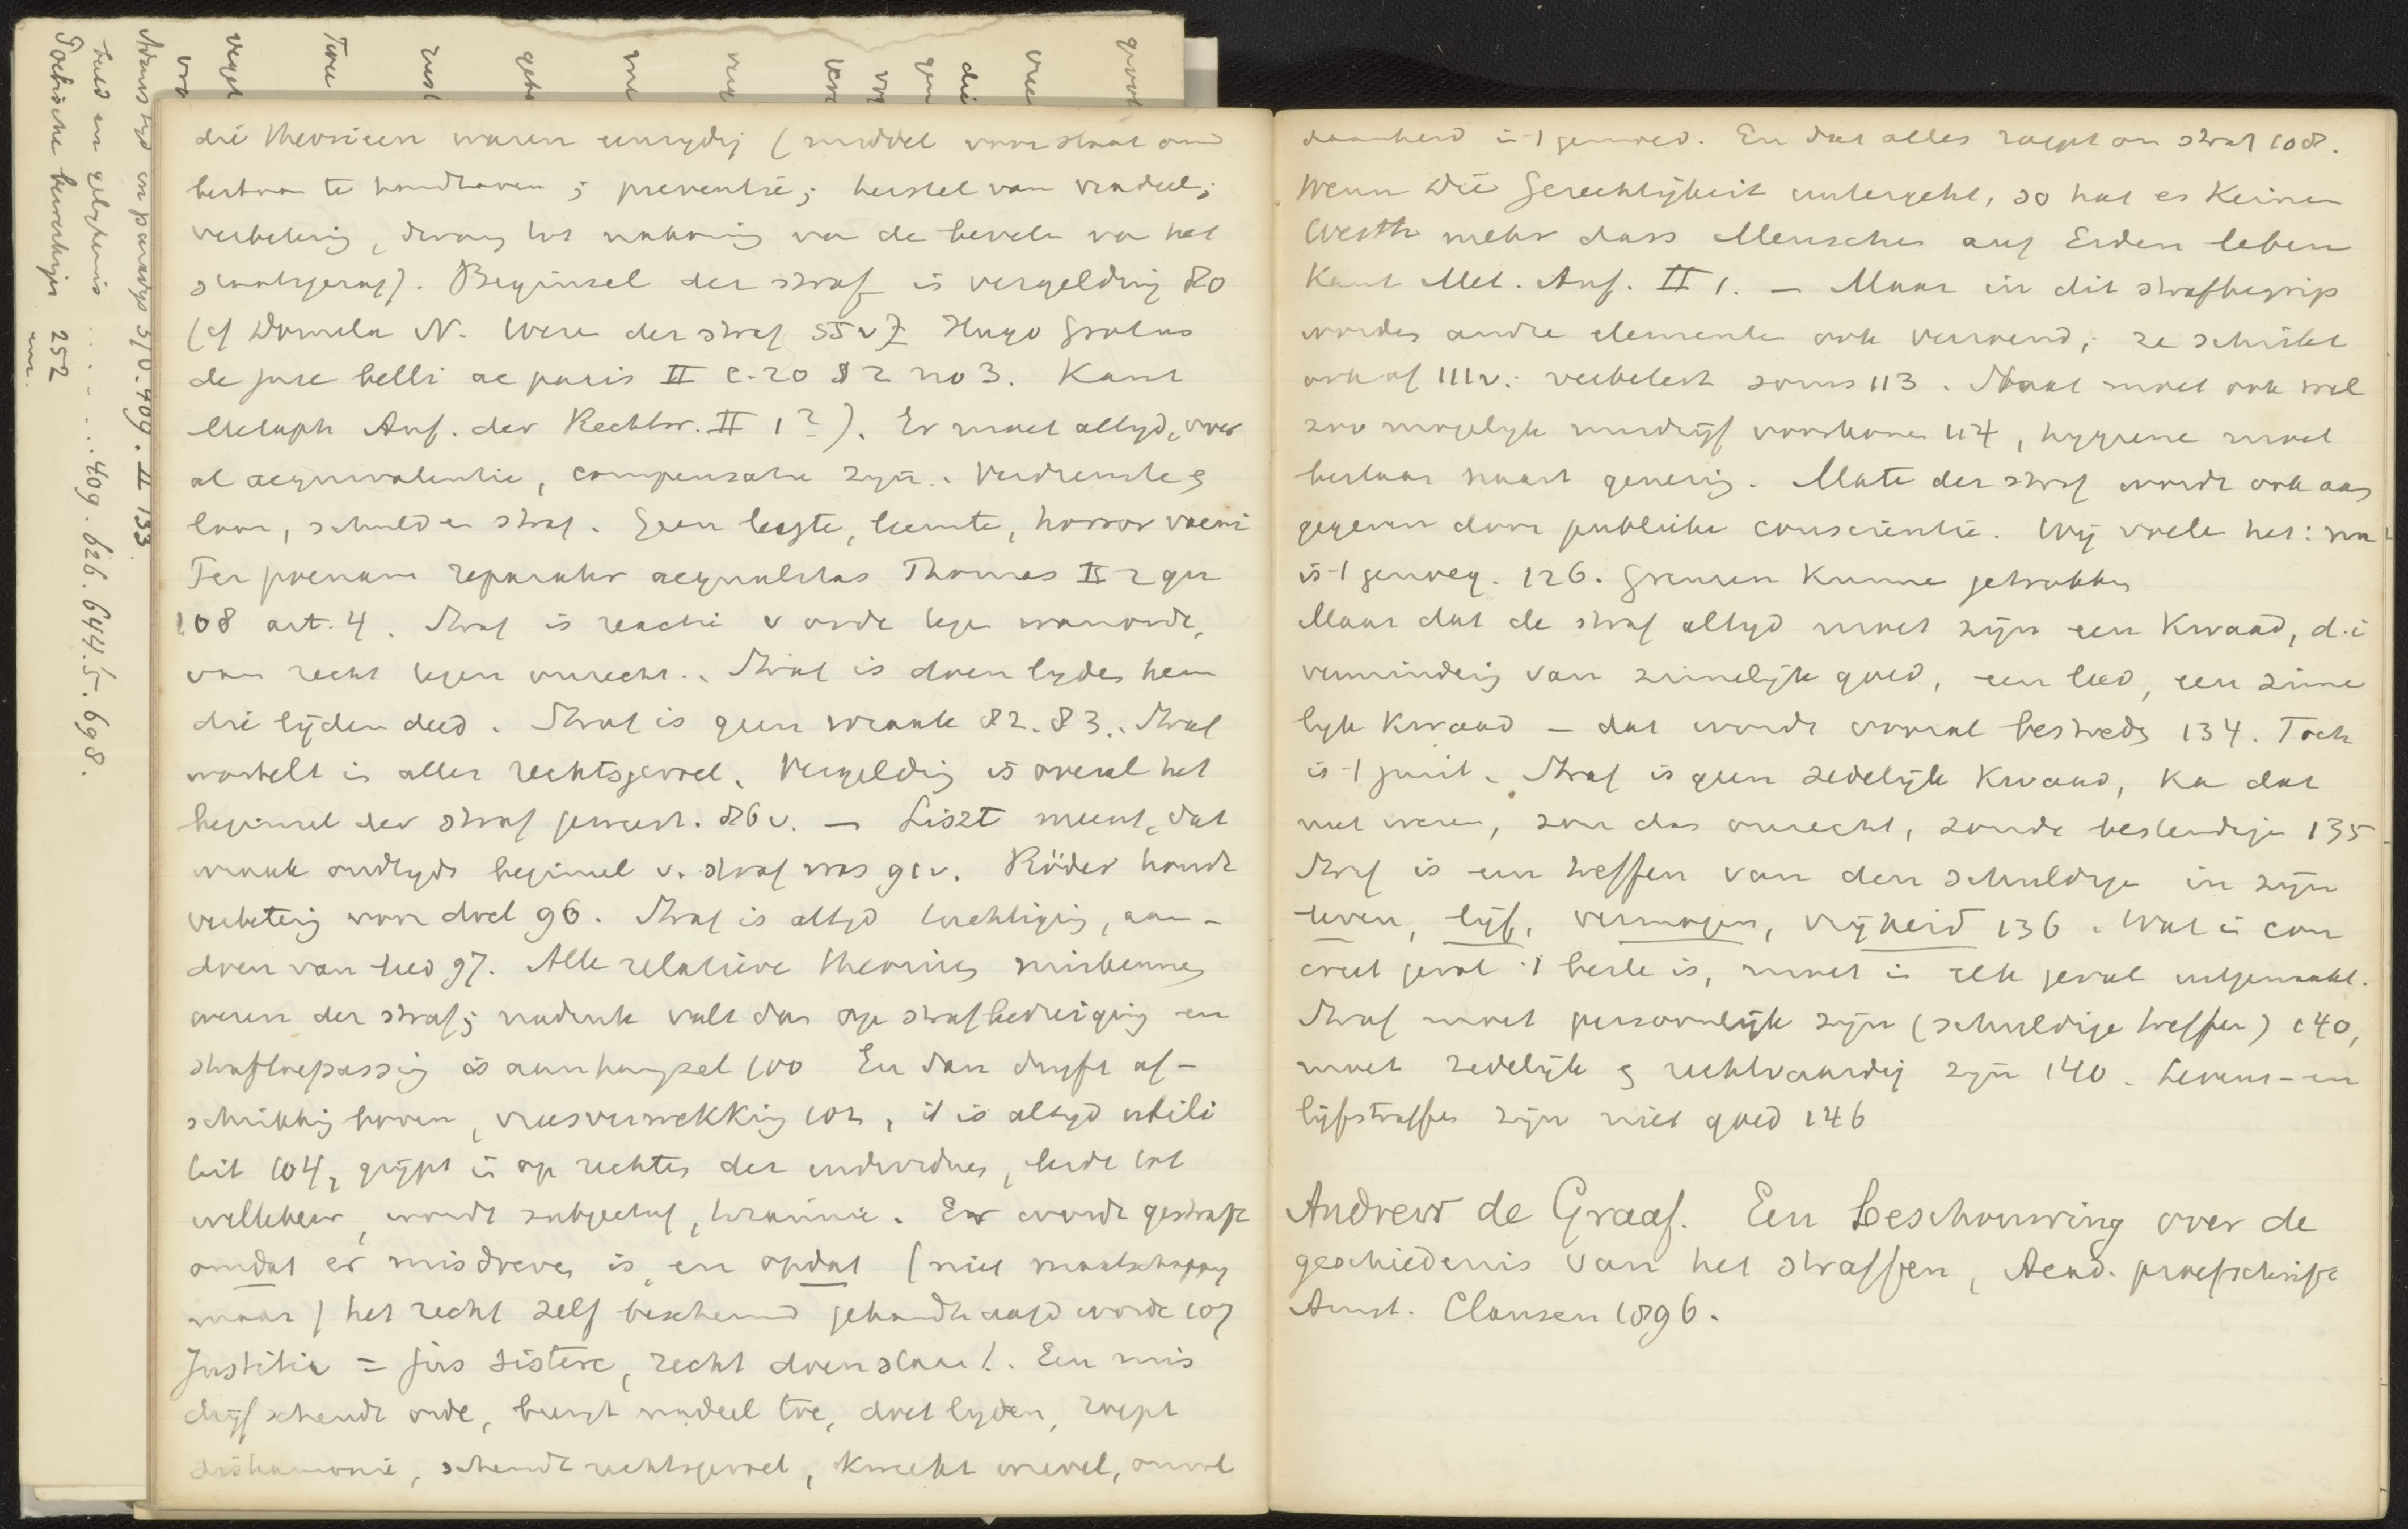 die theorieen waren eenzydig (middel voor staat om
bestaan te handhaven; preventie; herstel van nadeel;
verbetering, dwang tot nakoming van de bevelen van het
staatsgezag). Beginsel der straf is vergelding 80
(cf Domela N. Wezen der straf 55v Hugo Grotius
de jure belli ac pacis II c. 20 § 2 no 3. Kant
Metaph Anf. der Rechtsl. II 1 ). Er moet altyd, over
al aequivalentie, compensatie zyn. Verdienste &
loon, schuld en straf. Geen leegte, horror vacui
Per poenam reparatur aequalitas Thomas II 2 qu
108 art. 4. Straf is reactie v orde tegen wanorde,
van recht tegen onrecht. Straf is doen lyden hem
die lijden deed. Straf is geen wraak 82. 83. Straf
wortelt in aller rechtsgevoel. Vergelding is overal het
beginsel der straf geweest. 86v. — Liszt meent, dat
wraak oudtyds beginsel v. straf was 91v. Röder houdt
verbetering voor doel 96. Straf is altyd tuchtiging, aan-
doen van leed 97. Alle relatieve theorieen miskennen
wezen der straf; nadruk valt dan op strafbedreiging en
straftoepassing is aanhangsel 100 En dan dryft af-
schrikking boven, vreesverwekking 102, it is altyd utili
teit 104, grijpt in op rechten der individuen, leidt tot
willekeur, wordt subjectief, tirannie. Er wordt gestraft
omdat er misdreven is, en opdat (niet maatschappy
maar) het recht zelf beschermd gehandhaafd worde 107
Justitia = jus sistere, recht doen staan. Een mis
drijf schendt orde, brengt nadeel toe, doet lyden, roept
disharmonie, schendt rechtsgevoel, kweekt wrevel, onvol
daanheid in 't gemoed. En dat alles roept om straf 108.
Wenn die Gerechtigkeit untergeht, so hat es keinen
Werth mehr dass Menschen auf Erden leben
Kant Met. Anf. II 1. — Maar in dit strafbegrip
worden andre elementen ook verzoend; ze schrikt
ook af 111v. verbetert soms 113. Staat moet ook wel
zoo mogelyk misdrijf voorkomen 114, hygiene moet
bestaan naast genezing. Mate der straf wordt ook aan
gegeven door publieke conscientie. Wij voelen het: nu
is 't genoeg. 126. Grenzen kunnen getrokken
Maar dat de straf altyd moet zijn een kwaad, d.i
vermindering van zinnelijk goed, een leed, een zinne
lyk kwaad — dat wordt vooral bestreden 134. Toch
is 't juist. Straf is geen zedelijk kwaad, kan dat
niet wezen, zou dan onrecht, zonde bestendigen 135
Straf is een treffen van den schuldige in zijn
leven, lijf, vermogen, vrijheid 136. Wat in con
creet geval 't beste is, moet in elk geval uitgemaakt.
Straf moet persoonlijk zijn (schuldige treffen) 140,
moet zedelijk & rechtvaardig zijn 140. Levens- en
lijfstraffen zijn niet goed 146
Andrew de Graaf. Een beschouwing over de
geschiedenis van het straffen, Acad. proefschrift
Amst. Clausen 1896.